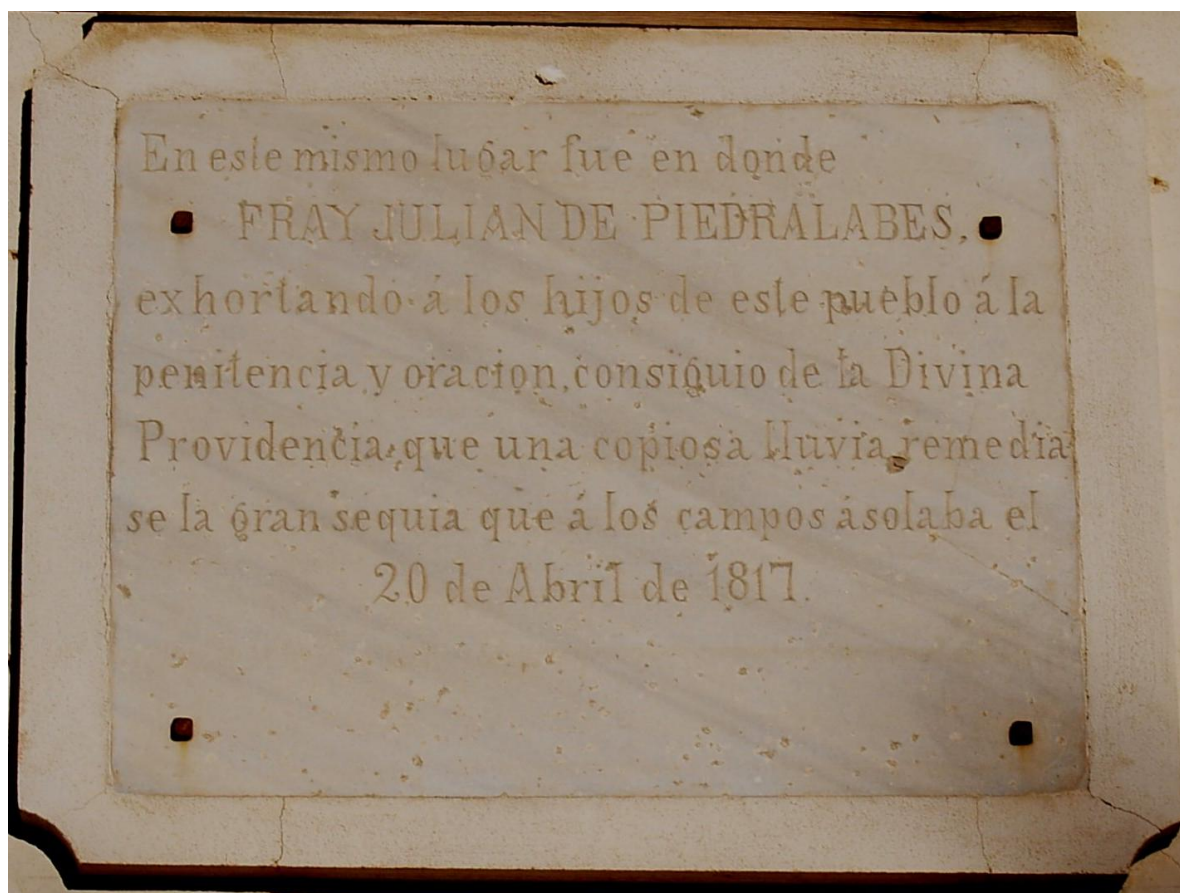 En este mismo lugar fue en donde
FRAY JULIAN DE PIEDRALABES,
exhortando á los hijos de este pueblo á la
penitencia y oracion, consiguio de la Divina
Providencia, que una copiosa lluvia remedia
se la gran sequia que á los campos ásolaba el
20 de Abril de 1817.